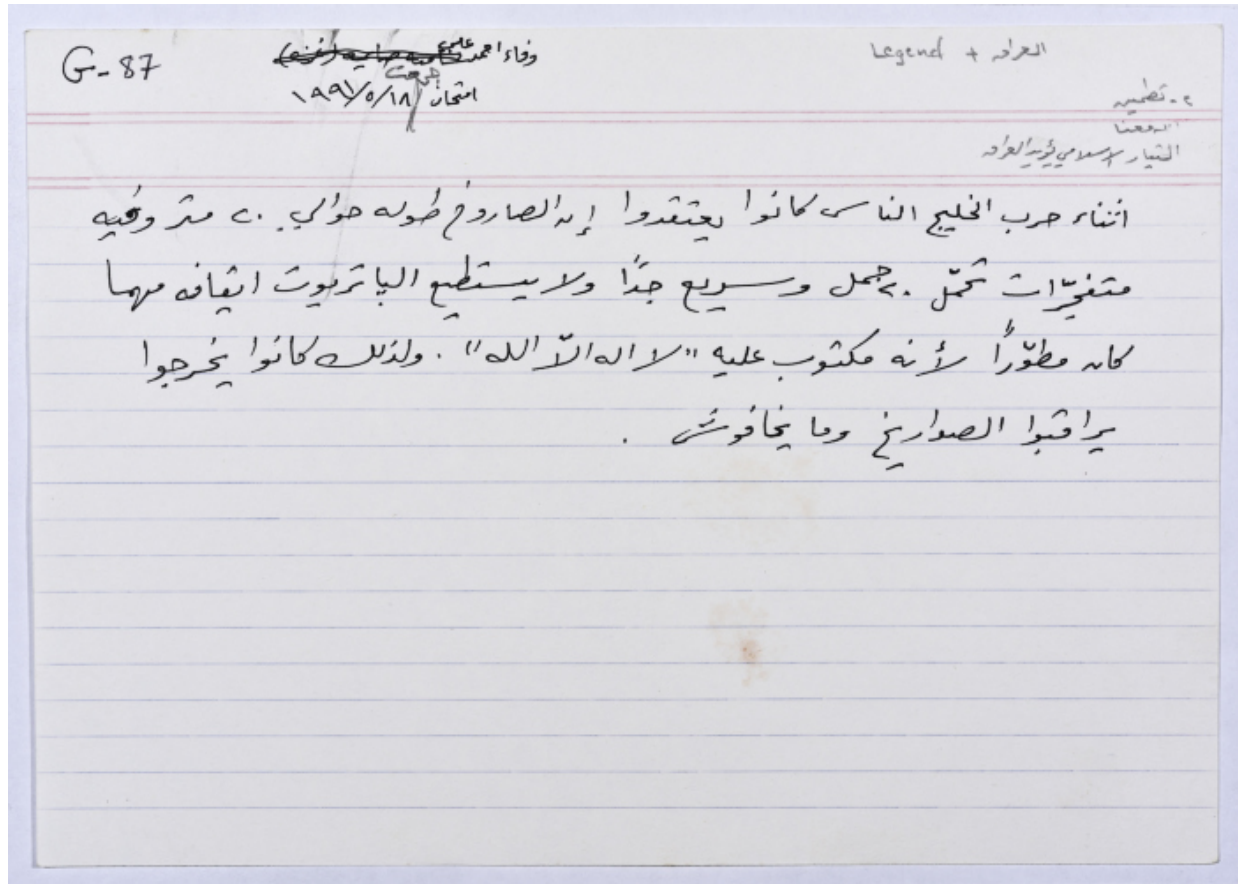 G-87
وفاء احمد علي
امتحان ١٩٩١/٥/١٨
العراق + Legend
٢- تطمين
الدفعنا
التيار الاسلامي يؤيد العراق
اثناء حرب الخليج الناس كانوا يعتقدوا إن الصاروخ طوله حوالي ٢٠ متر وفيه
متفجّرات تحمّل ٢٠ جمل وسريع جدًا ولا يستطيع الباتريوت ايقافه مهما
كان مطوّرًا لأنه مكتوب عليه "لا اله الاّ الله". ولذلك كانوا يخرجوا
يراقبوا الصواريخ وما يخافوش .